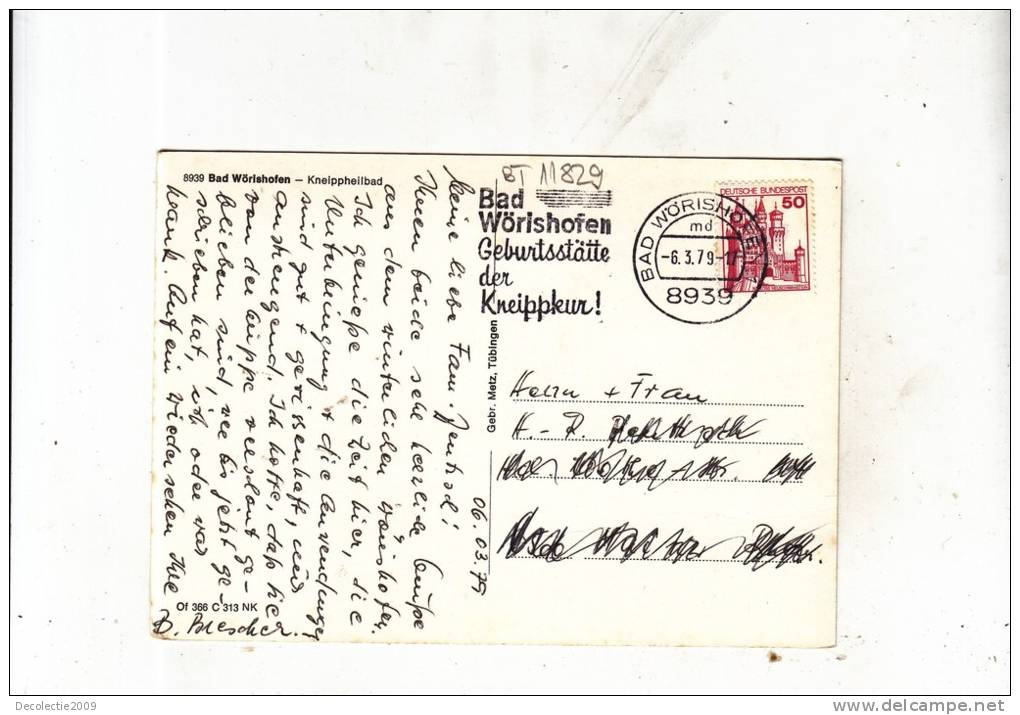 8939 Bad Wörishofen – Kneippheilbad
BT 11829
Bad
Wörishofen
Geburtsstätte
der
Kneippkur!
BAD WÖRISHOFEN
md
-6.3.79-17
8939
DEUTSCHE BUNDESPOST
50
06.03.79
Meine liebe Fam.
Ihnen beide sehr herzliche Grüße
aus dem winterlichen Wörishofen.
Ich genieße die Zeit hier, die
Unterbringung + die Anwendungen
sind gut + gewissenhaft, nur
anstrengend. Ich hoffe, daß Sie
von der Grippe verschont ge-
blieben sind, wer bis jetzt ge-
schrieben hat, ist oder war
krank. Auf ein Wiedersehen Ihre
B. Brescher.
Gebr. Metz, Tübingen
Herrn + Frau
H. - R.
Of 366 C 313 NK
Decolectie2009